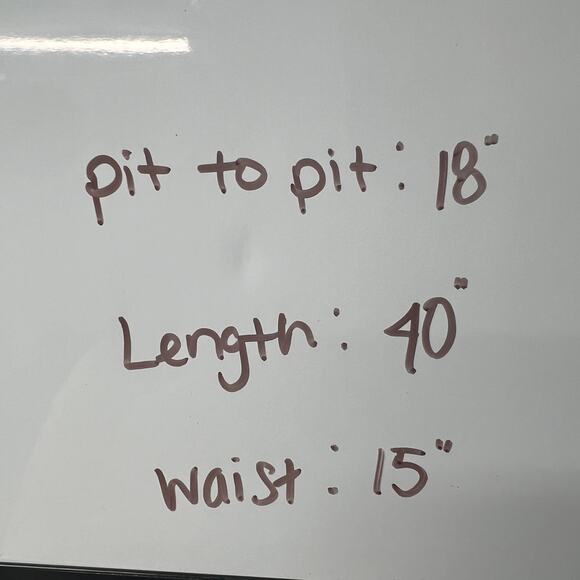 pit to pit: 18"
Length: 40"
waist: 15"